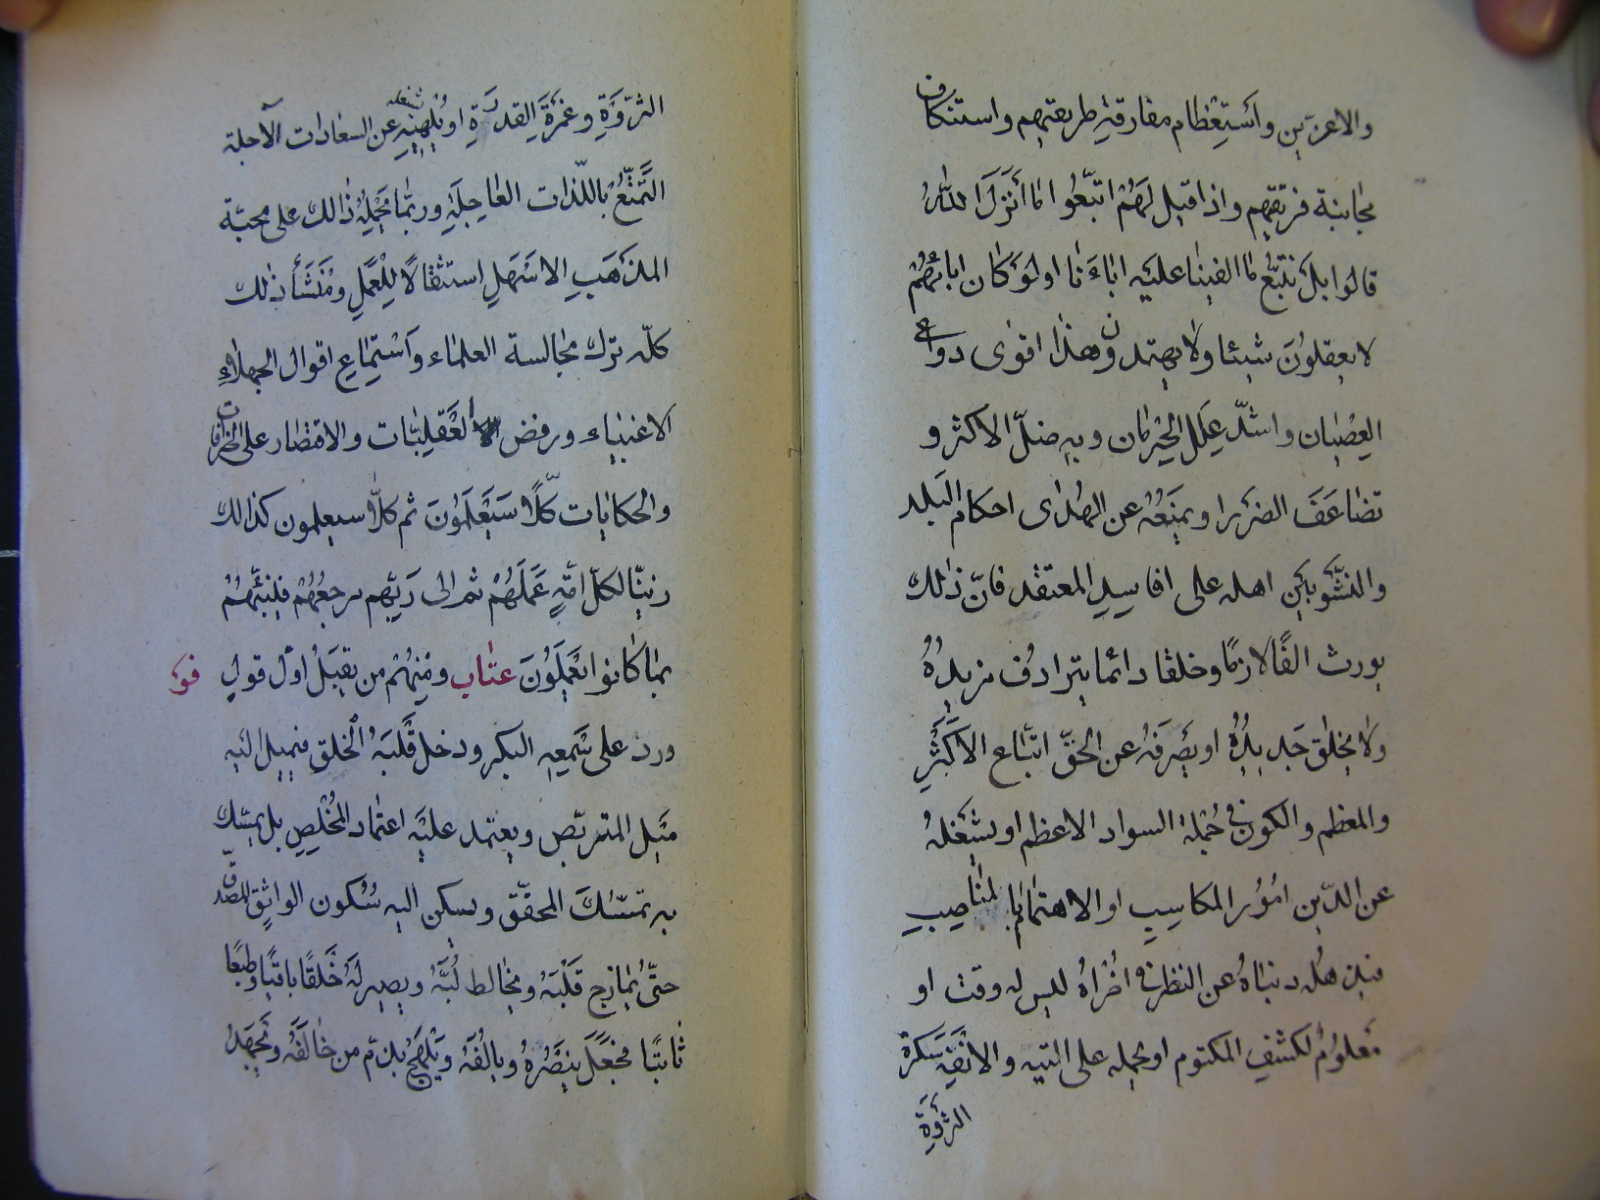 والاعزّين واستعظام مفارقة طريقتهم واستنكاف
مجانبة فريقهم واذا قيل لَهُمْ اتبّعُوا ما أَنْزَلَ اللهُ
قالوا بل نتبّع ما الفينا عليه اباءَنا اولوْ كان اباؤُهُمْ
لا يعقلوُنَ شيئا ولا يهتدون وهذا اقوى دواعى
العِصيان واشدّ عِلَل الحِرمان وبه ضلّ الاكثر و
تضاعَفَ الضرر او يمنَعُهُ عن الهُدى احكام البلد
والنشّو بين اهله على افاسِدِ المعتقد فانّ ذلك
يورث الفًا لازمًا وخلقا دائما يترادُف مزيدُهُ
ولا يخلق جَديدُهُ او يَصْرفهُ عن الحقّ اتّباع الاَكثَرِ
والمعظم والكون فى جُملة السواد الاعظم او يشغَلهُ
عن الدّين امُوُر المكاسِبِ او الاهتمام بالمناصِبِ
فيذهله دنياهُ عن النظر فى اخُراهُ ليس له وقت او
معلوُمٌ لكشفِ المكتوم او يحمله على التيه والانَفَةِ سَكرة
الثرْوَةِ
الثرّوَةِ وغمرَةَ القدرَةِ او يُلهيْهِ يشغله عن السعادات الآجلة
التَّمتّعُ باللّذات العاجِلَةِ وربّما يَحْمِلهُ ذالك على محبّة
المذهَبِ الاسَهلِ استثقالًا لِلْعَمَلِ ومُنَشأ ذلك
كلّه ترك مجالسة العلماء وَاسْتِماعِ اقوال الجهلاءِ
الاغنياء ورفض العَقليّات والاقتصار على الخرافات
والحكايات كَلّا سَيَعْلَمَوُنَ ثم كلاّ سيعلمون كذالك
زينّا لكلّ امّةٍ عَمَلَهُمْ ثم الى رَبّهم مرجعُهُمْ فينبّئهُمْ
بما كانوا يَعَمَلوُنَ عتاب ومِنِهُمْ من يقبَلُ اوّل قولٍ
ورد على سَمعِهِ البكر ودخل قَلبَهُ الخلق فيميل اليه
مَيل المتربّص ويعتمد عليَه اعتماد المُخْلِصِ بل يمسّك
به تمسّكَ المحقّق ويسكن اليه سُكون الواثِقِ المصدّق
حتّى يُمازج قَلْبَهُ ويخالط لُبَّهُ ويصير لَهُ خُلقًا باقيًا وطبعًا
ثابتًا فجعَلَ ينصُرُهُ ويالُفَهُ ويَلهَجُ بذم من خالَفَهُ ويَجهَدُ